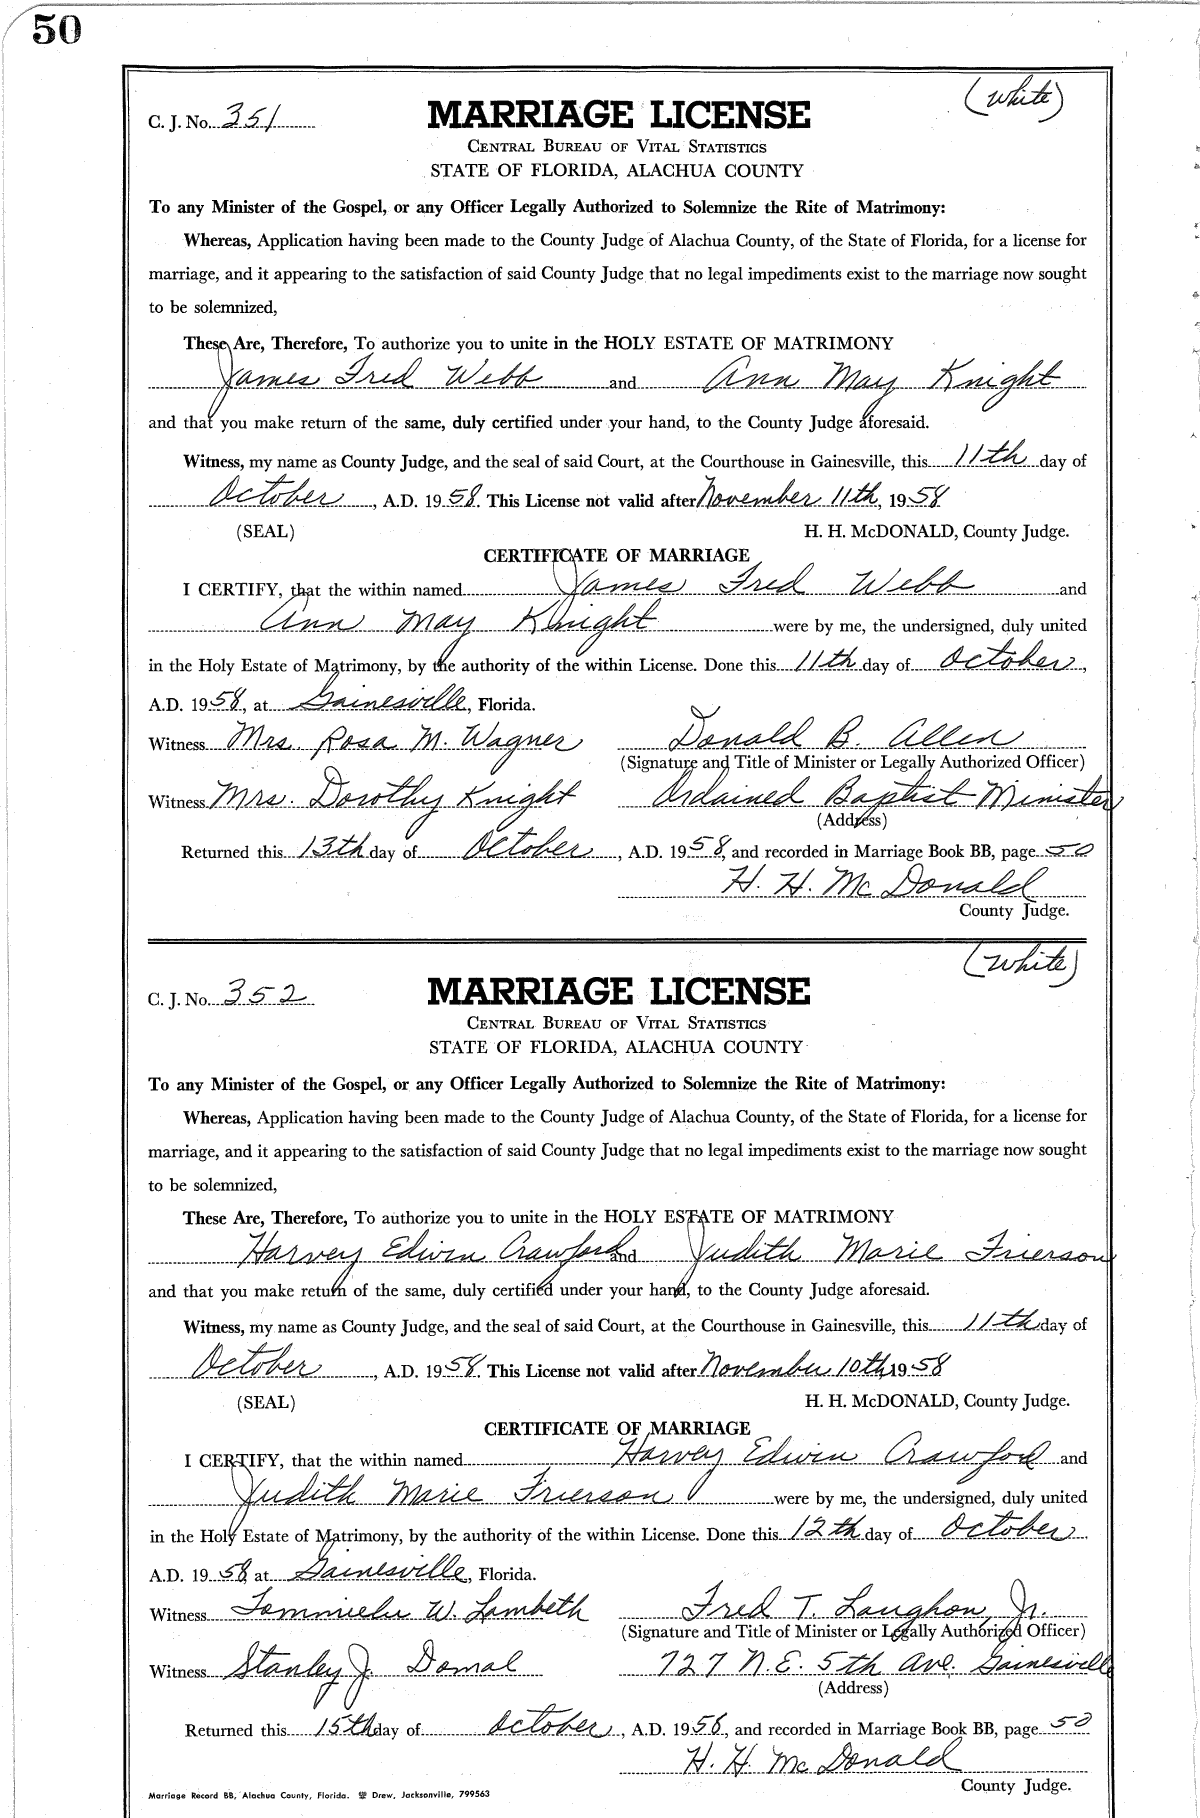 50
(White)
C. J. No. 351
MARRIAGE LICENSE
CENTRAL BUREAU OF VITAL STATISTICS
STATE OF FLORIDA, ALACHUA COUNTY
To any Minister of the Gospel, or any Officer Legally Authorized to Solemnize the Rite of Matrimony:
Whereas, Application having been made to the County Judge of Alachua County, of the State of Florida, for a license for
marriage, and it appearing to the satisfaction of said County Judge that no legal impediments exist to the marriage now sought
to be solemnized,
These Are, Therefore, To authorize you to unite in the HOLY ESTATE OF MATRIMONY
James Fred Webb and Ann May Knight
and that you make return of the same, duly certified under your hand, to the County Judge aforesaid.
Witness, my name as County Judge, and the seal of said Court, at the Courthouse in Gainesville, this 11th day of
October, A.D. 1958. This License not valid after November 11th, 1958
(SEAL) H. H. McDONALD, County Judge.
CERTIFICATE OF MARRIAGE
I CERTIFY, that the within named James Fred Webb and
Ann May Knight were by me, the undersigned, duly united
in the Holy Estate of Matrimony, by the authority of the within License. Done this 11th day of October,
A.D. 1958, at Gainesville, Florida.
Witness Mrs. Rosa M. Wagner Donald B. Allen
(Signature and Title of Minister or Legally Authorized Officer)
Witness Mrs. Dorothy Knight Ordained Baptist Minister
(Address)
Returned this 13th day of October, A.D. 1958, and recorded in Marriage Book BB, page 50
H. H. McDonald
County Judge.
(White)
C. J. No. 352
MARRIAGE LICENSE
CENTRAL BUREAU OF VITAL STATISTICS
STATE OF FLORIDA, ALACHUA COUNTY
To any Minister of the Gospel, or any Officer Legally Authorized to Solemnize the Rite of Matrimony:
Whereas, Application having been made to the County Judge of Alachua County, of the State of Florida, for a license for
marriage, and it appearing to the satisfaction of said County Judge that no legal impediments exist to the marriage now sought
to be solemnized,
These Are, Therefore, To authorize you to unite in the HOLY ESTATE OF MATRIMONY
Harvey Edwin Crawford and Judith Marie Frierson
and that you make return of the same, duly certified under your hand, to the County Judge aforesaid.
Witness, my name as County Judge, and the seal of said Court, at the Courthouse in Gainesville, this 11th day of
October, A.D. 1958. This License not valid after November 10th 1958
(SEAL) H. H. McDONALD, County Judge.
CERTIFICATE OF MARRIAGE
I CERTIFY, that the within named Harvey Edwin Crawford and
Judith Marie Frierson were by me, the undersigned, duly united
in the Holy Estate of Matrimony, by the authority of the within License. Done this 12th day of October
A.D. 1958, at Gainesville, Florida.
Witness W. Lambeth Fred T. Laughon, Jr.
(Signature and Title of Minister or Legally Authorized Officer)
Witness Stanley J. Domal 727 N.E. 5th Ave. Gainesville
(Address)
Returned this 15th day of October, A.D. 1958, and recorded in Marriage Book BB, page 50
H. H. McDonald
County Judge.
Marriage Record BB, Alachua County, Florida. Drew, Jacksonville, 799563